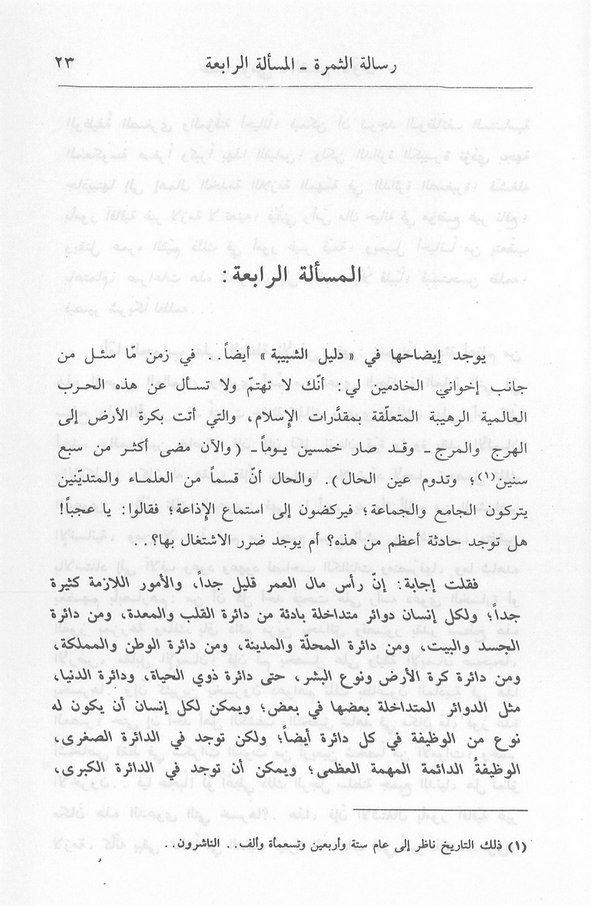 رسالة الثمرة ـ المسألة الرابعة ٢٣
المسألة الرابعة:
يوجد إيضاحها في «دليل الشبيبة» أيضاً.. في زمن مّا سئل من
جانب إخواني الخادمين لي: أنّك لا تهتم ولا تسأل عن هذه الحرب
العالمية الرهيبة المتعلّقة بمقدَّرات الإسلام، والتي أتت بكرة الأرض إلى
الهرج والمرج ـ وقد صار خمسين يوماً ـ (والآن مضى أكثر من سبع
سنين(١)؛ وتدوم عين الحال). والحال أنّ قسماً من العلماء والمتديّنين
يتركون الجامع والجماعة؛ فيركضون إلى استماع الإذاعة؛ فقالوا: يا عجباً!
هل توجد حادثة أعظم من هذه؟ أم يوجد ضرر الاشتغال بها؟..
فقلت إجابة: إنّ رأس مال العمر قليل جداً، والأمور اللازمة كثيرة
جداً؛ ولكل إنسان دوائر متداخلة بادئة من دائرة القلب والمعدة، ومن دائرة
الجسد والبيت، ومن دائرة المحلّة والمدينة، ومن دائرة الوطن والمملكة،
ومن دائرة كرة الأرض ونوع البشر، حتى دائرة ذوي الحياة، ودائرة الدنيا،
مثل الدوائر المتداخلة بعضها في بعض؛ ويمكن لكل إنسان أن يكون له
نوع من الوظيفة في كل دائرة أيضاً؛ ولكن توجد في الدائرة الصغرى،
الوظيفةُ الدائمة المهمة العظمى؛ ويمكن أن توجد في الدائرة الكبرى،
(١) ذلك التاريخ ناظر إلى عام ستة وأربعين وتسعمأة وألف.. الناشرون..